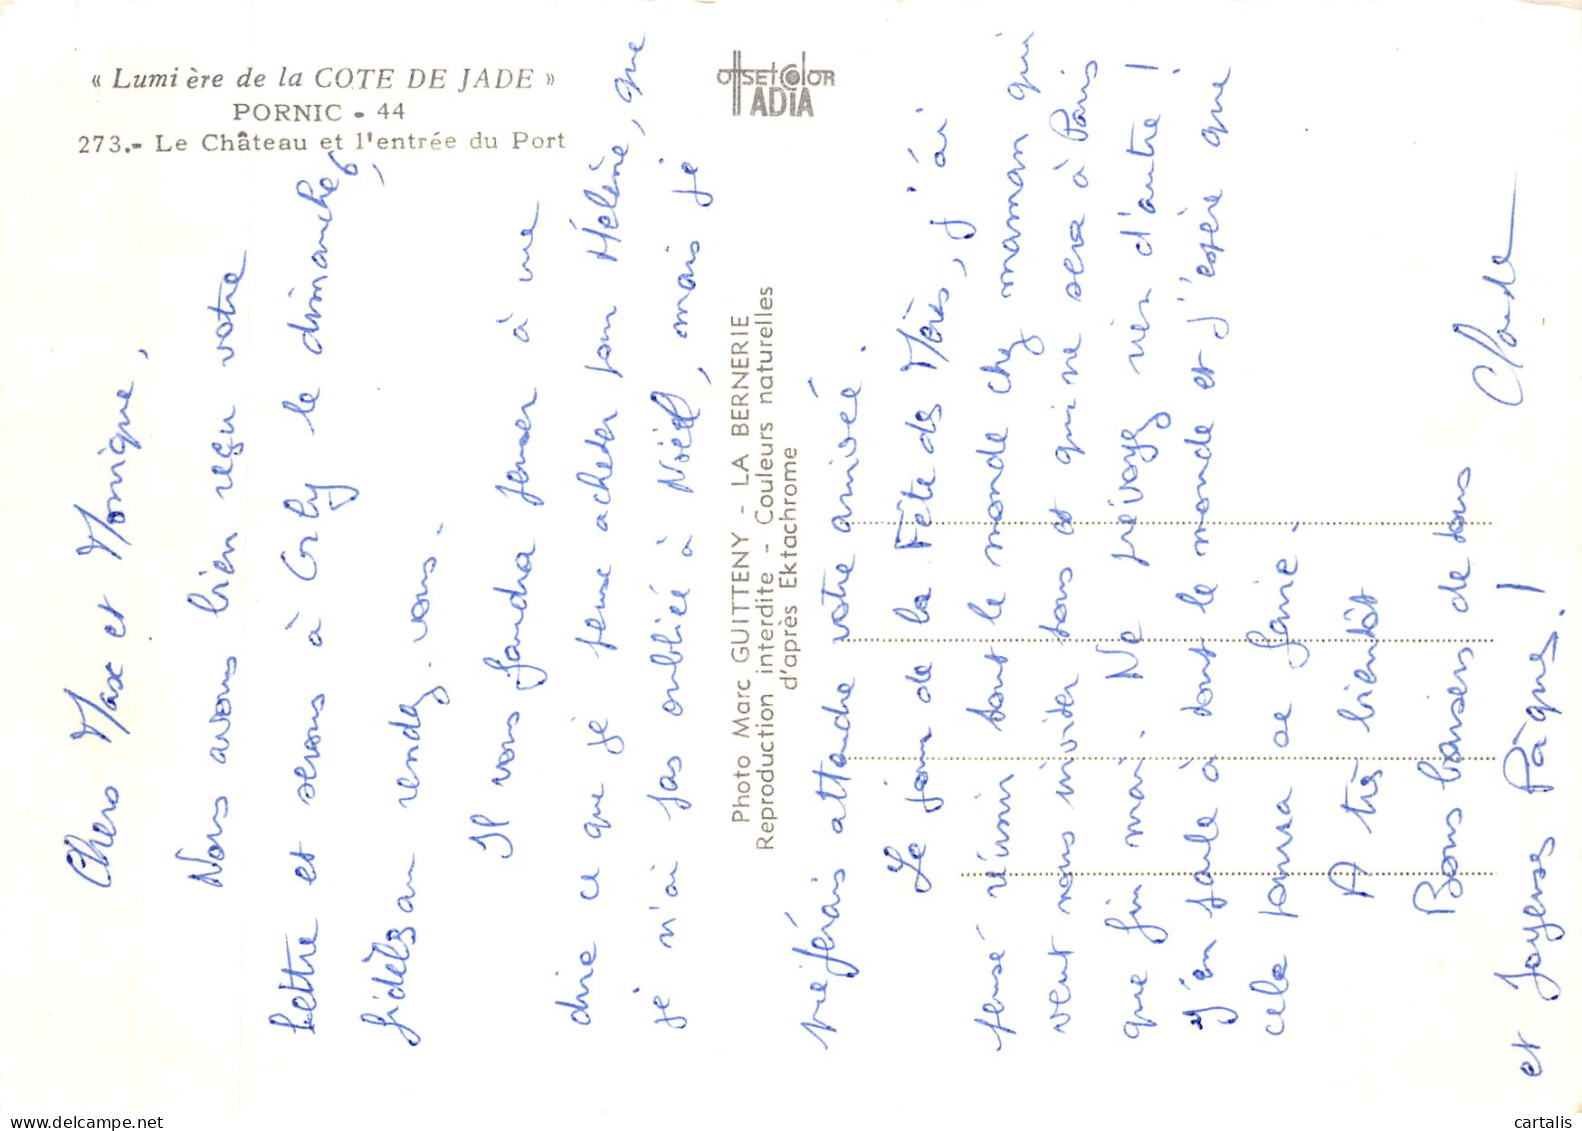 « Lumière de la COTE DE JADE »
PORNIC - 44
273.- Le Château et l'entrée du Port
OffsetColor
ADIA
Photo Marc GUITTENY - LA BERNERIE
Reproduction interdite - Couleurs naturelles
d'après Ektachrome
Chers Max et Monique,
Nous avons bien reçu votre
lettre et serons à Orly le dimanche 6,
fidèles au rendez-vous.
Il vous faudra penser à me
dire ce que je peux acheter pour Hélène, que
je n'ai pas oubliée à Noël, mais je
préférais attendre votre arrivée.
Le jour de la Fête des Mères, j'ai
pensé réunir tout le monde chez maman qui
veut nous inviter tous et qui ne sera à Paris
que fin mai. Ne prévoyez rien d'autre !
J'en parle à tout le monde et j'espère que
cela pourra se faire.
A très bientôt
Bons baisers de tous
et Joyeuses Pâques !
Claude
cartalis
www.delcampe.net